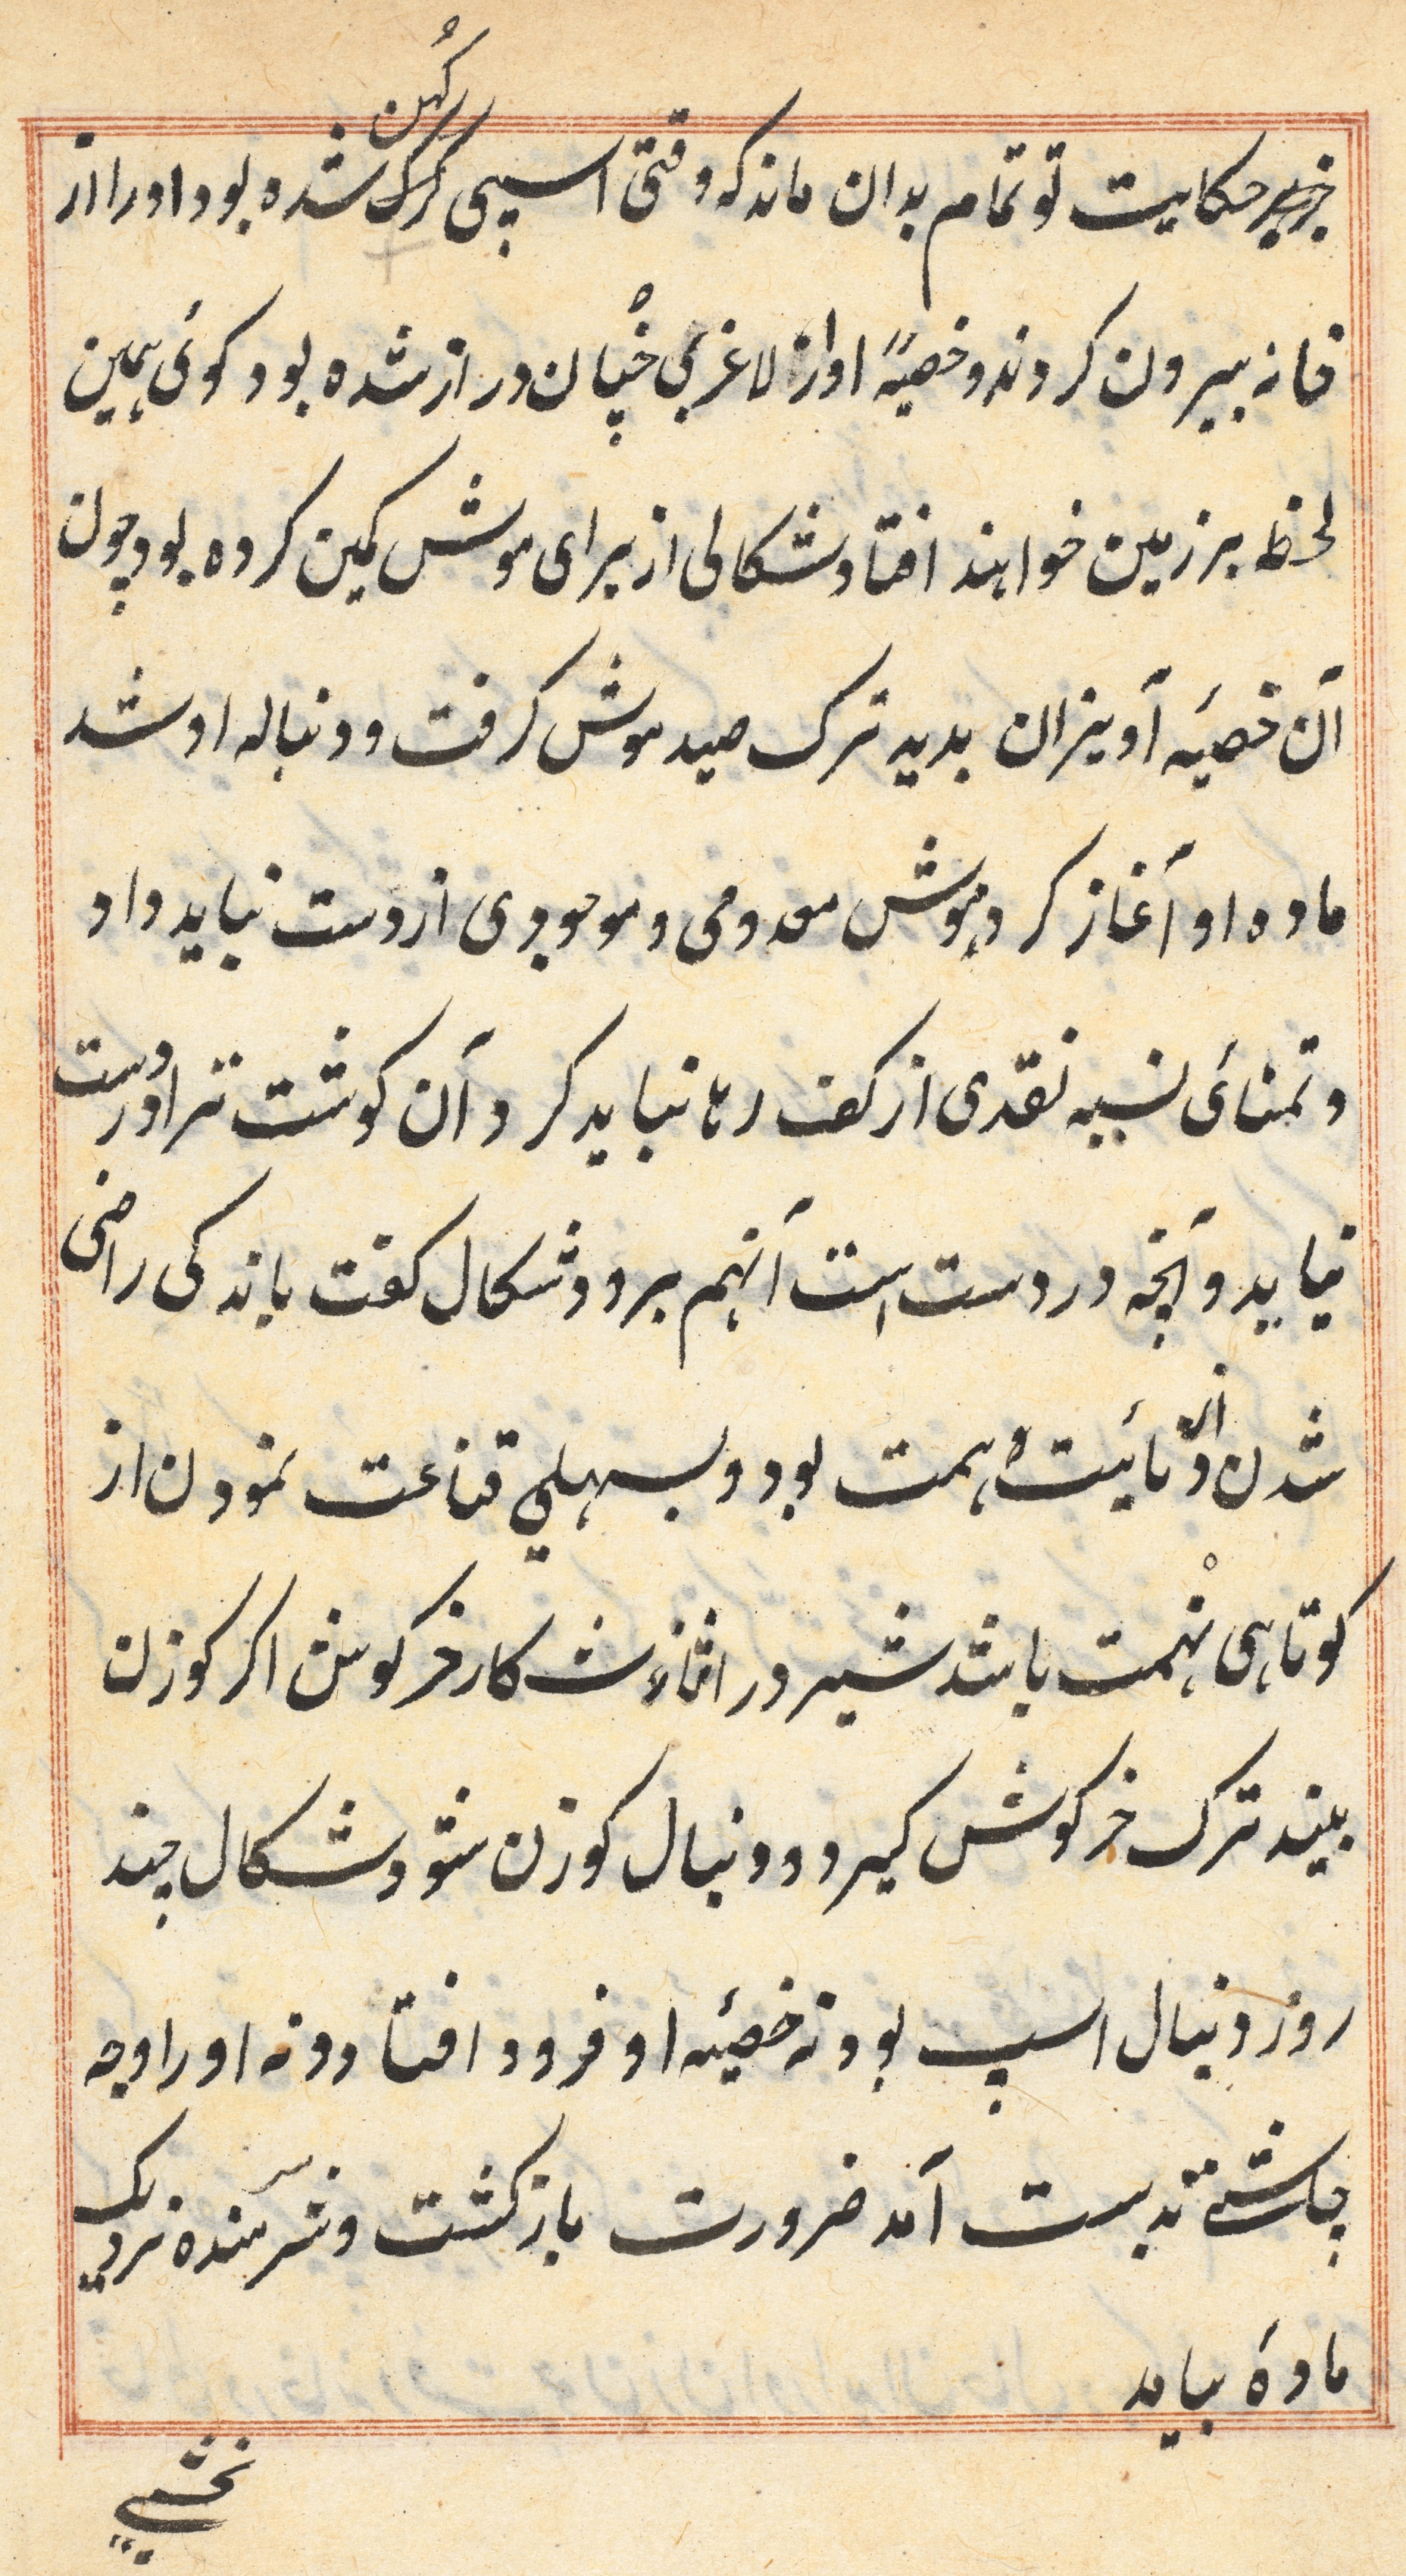 کهن
حکایت تو تمام بدان ماند که وقتی اسپی کرک شده بود اورا از
خانه بیرون کردند و خصیهٔ او از لاغری چنان دراز شده بود کوئی همین
لحظه بر زمین خواهند افتاد شکالی از برای موش کمین کرده بود چون
آن خصیهٔ آویزان بدید ترک صید موش کرفت و دنباله او شد
ماده او آغاز کرد موش معدومی و موجودی از دست نباید داد
و تمنائی نسیه نقدی از کف رها نباید کرد آن کوشت ترا در دست
نیاید و آنچه در دست است آنهم برود شکال کفت باندکی راضی
شدن از دنائیت همت بود و بسهلی قناعت نمودن از
کوتاهی نهمت باشد شیر در اثناء شکار خرکوش اکر کوزن
بیند ترک خرکوش کیرد و دنبال کوزن شود شکال چند
روز دنبال اسپ بود نه خصیهٔ او فرود افتاد و نه اورا وجه
چاشتی بدست آمد ضرورت بازکشت و شرمنده نزدیک
مادهٔ بیامد
نخشبی